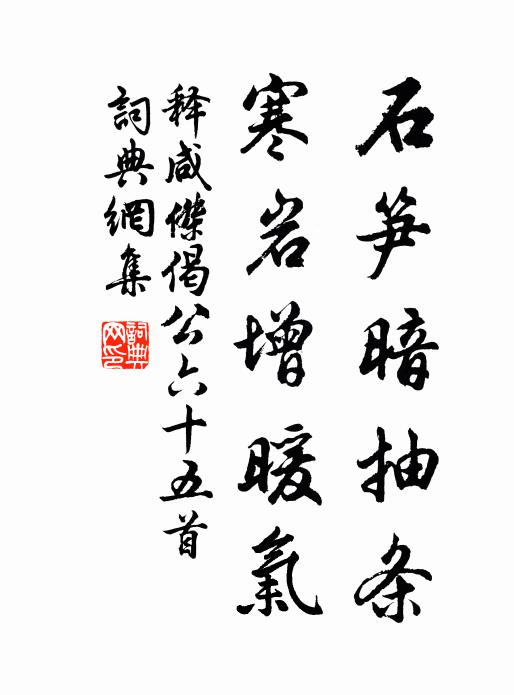 石笋暗抽条
寒岩增暖氣
释咸傑偈公六十五首
詞典網集
詞典网印